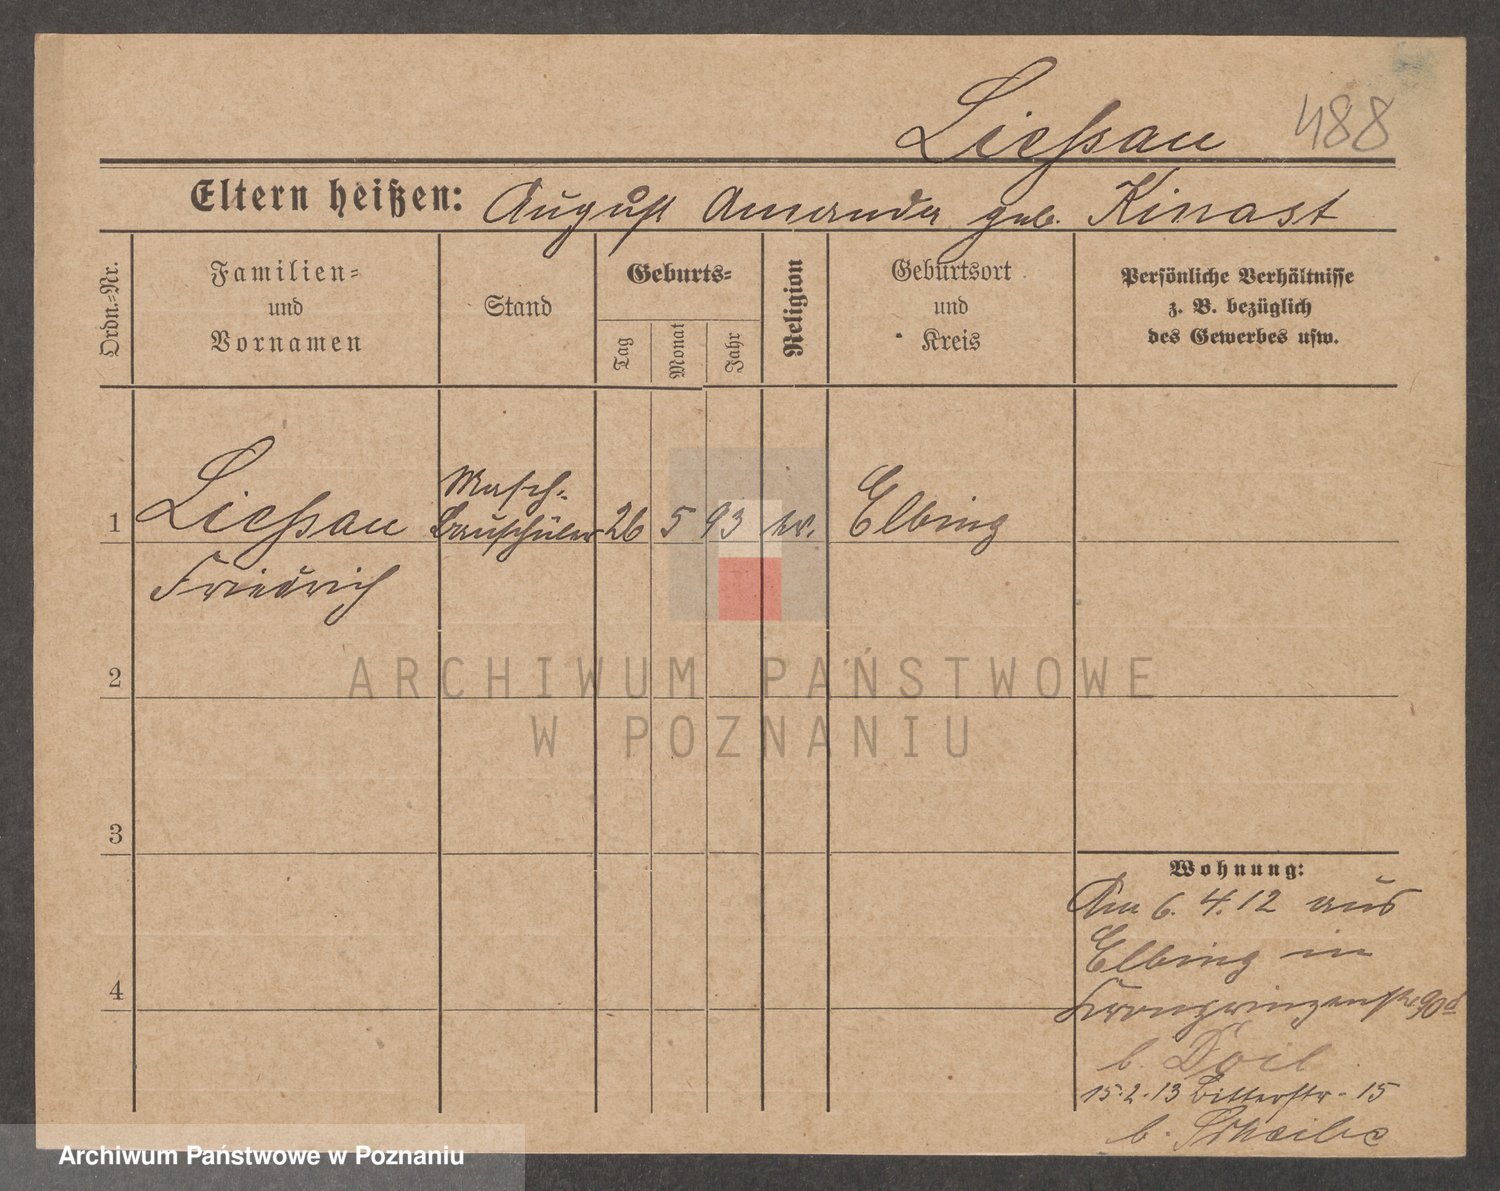 Ließau 488
Eltern heißen: August Amanda geb. Kinast
Ordn.=Nr.
Familien=
und
Vornamen
Stand
Geburts=
Tag
Monat
Jahr
Religion
Geburtsort
und
Kreis
Persönliche Verhältnisse
z. B. bezüglich
des Gewerbes usw.
1 Ließau Masch.= bauschüler 26 5 93 ev. Elbing
Friedrich
2
ARCHIWUM PAŃSTWOWE
W POZNANIU
3
Wohnung:
Am 6. 4. 12 aus
Elbing in
4
Kronprinzenstr. 90d
b.
15.2.13 Bitterstr. 15
b.
Archiwum Państwowe w Poznaniu